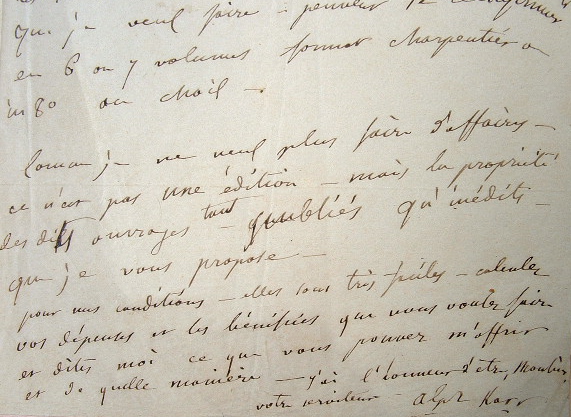 que je veux faire – peuvent se
en 6 ou 7 volumes format charpentier ou
in 8° au choix –
comme je ne veux plus faire d'affaires –
ce n'est pas une édition – mais la propriété
des dits ouvrages tant publiés qu'inédits –
que je vous propose –
pour nos conditions – elles sont très faciles – calculez
vos dépenses et les bénéfices que vous voulez faire
et dites moi ce que vous pouvez m'offrir
et de quelle manière – j'ai l'honneur d'être, Monsieur
votre serviteur – Alph Karr